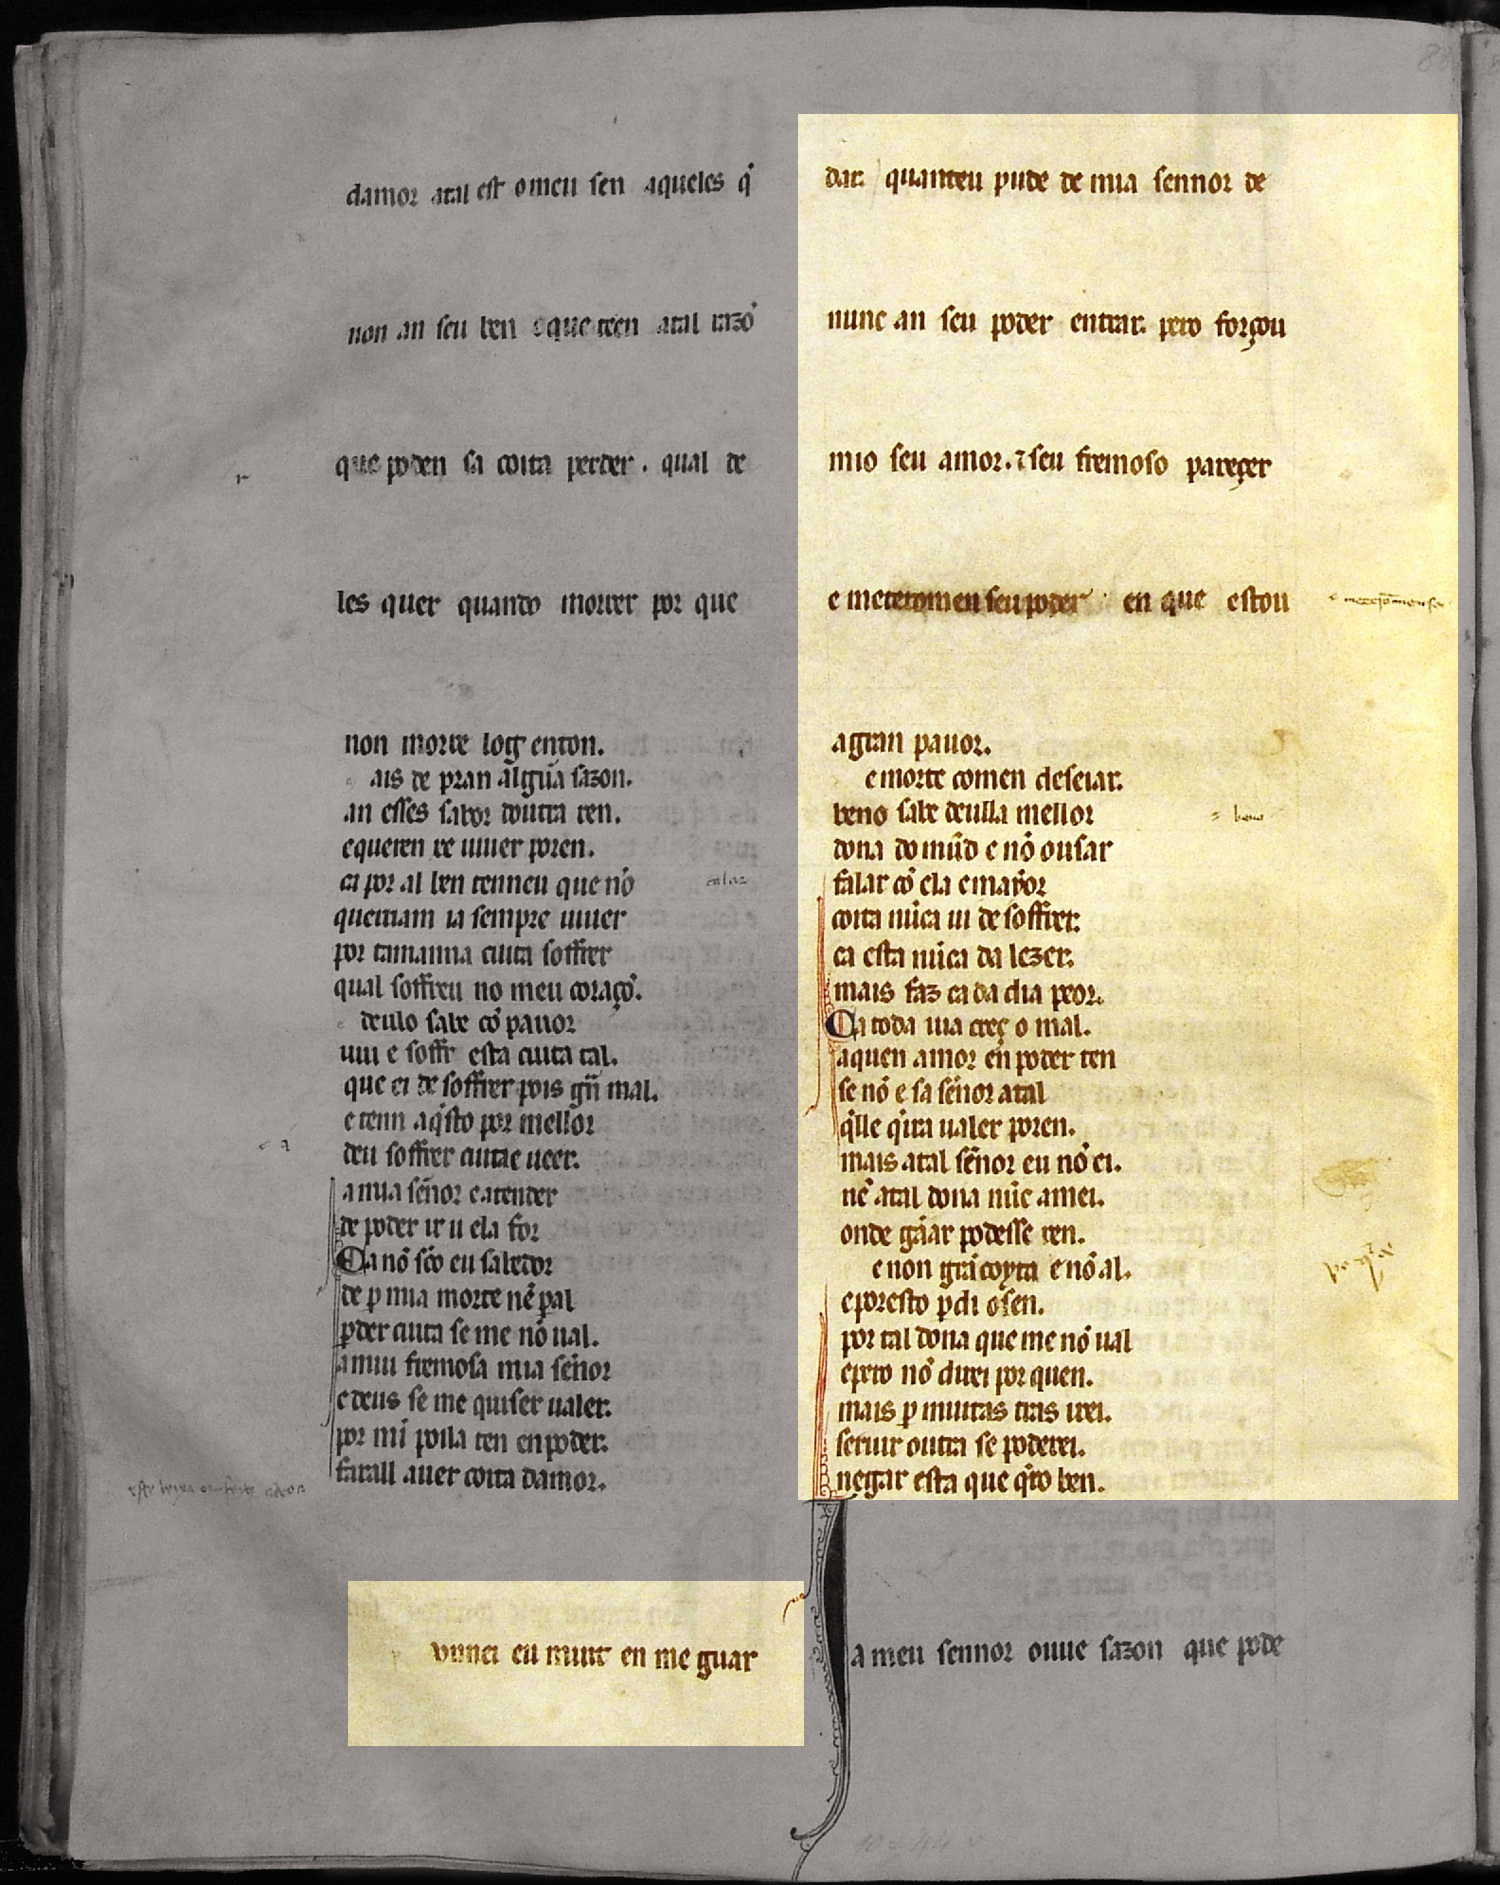 damor atal est o meu sen aqueles q̇
non an seu ben e que teen atal razō
que poden sa coita perder . qual de
les quer quando morrer por que
non morre log enton.
ais de pran algũa sazon.
an esses sabor doutra ren.
e queren de uiuer poren.
ca por al ben tenneu que nō
querriam ia sempre uiuer
por tamanna cuita soffrer
qual soffreu no meu coraçō.
deulo sabe cō pauor
uiu e soffr esta cuita tal.
que ei de soffrer pois gñ mal.
e tenn aq̇sto por mellor
deu soffrer cuitae ueer.
a mia señor e atender
de poder ir u ela for
Ca nō sōo eu sabedor
de p mia morte nē pal
pder cuita se me nō ual.
a mui fremosa mia señor
e deus se me quiser ualer.
por mī poila ten en poder.
farall auer coita damor.
vnnca eu muit en me guar
dar. quanteu pude de mia sennor de
nunc an seu poder entrar. pero forçou
mio seu amor. ⁊ seu fremoso pareçer
e meterom en seu poder en que estou
a gran pauor.
e morte comen deseiar.
beno sabe deulla mellor
dona do mūdo e nō ousar
falar cō ela e mayor
coita nūca ui de soffrer.
ca esta nūca da lezer.
mais faz ca da dia peor.
Ca toda uia creç o mal.
a quen amor en poder ten
se nō e sa señor atal
q̇lle q̇ira ualer poren.
mais atal señor eu nō ei.
nē atal dona nūc amei.
onde gāar podesse ren.
e non grā coyta e nō al.
e poresto pdi o sen.
por tal dona que me nō ual
e pero nō direi por quen.
mais p muitas trās irei.
seruir outra se poderei.
negar esta que q̇ro ben.
a meu sennor ouue sazon que pode